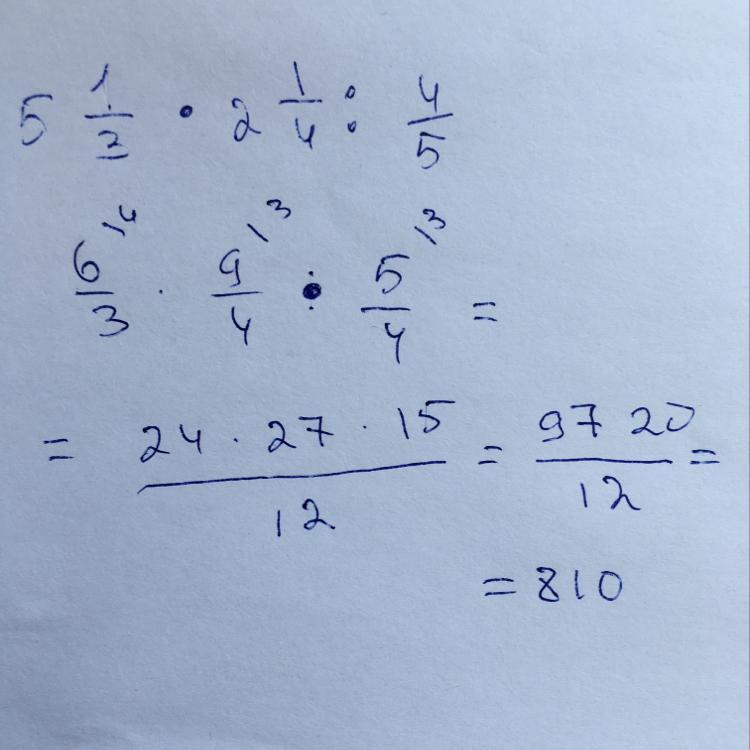 5 1/3 · 2 1/4 : 4/5
6/3 \4 · 9/4 \3 · 5/4 \3 =
= 24 · 27 · 15 / 12 = 9720 / 12 =
= 810